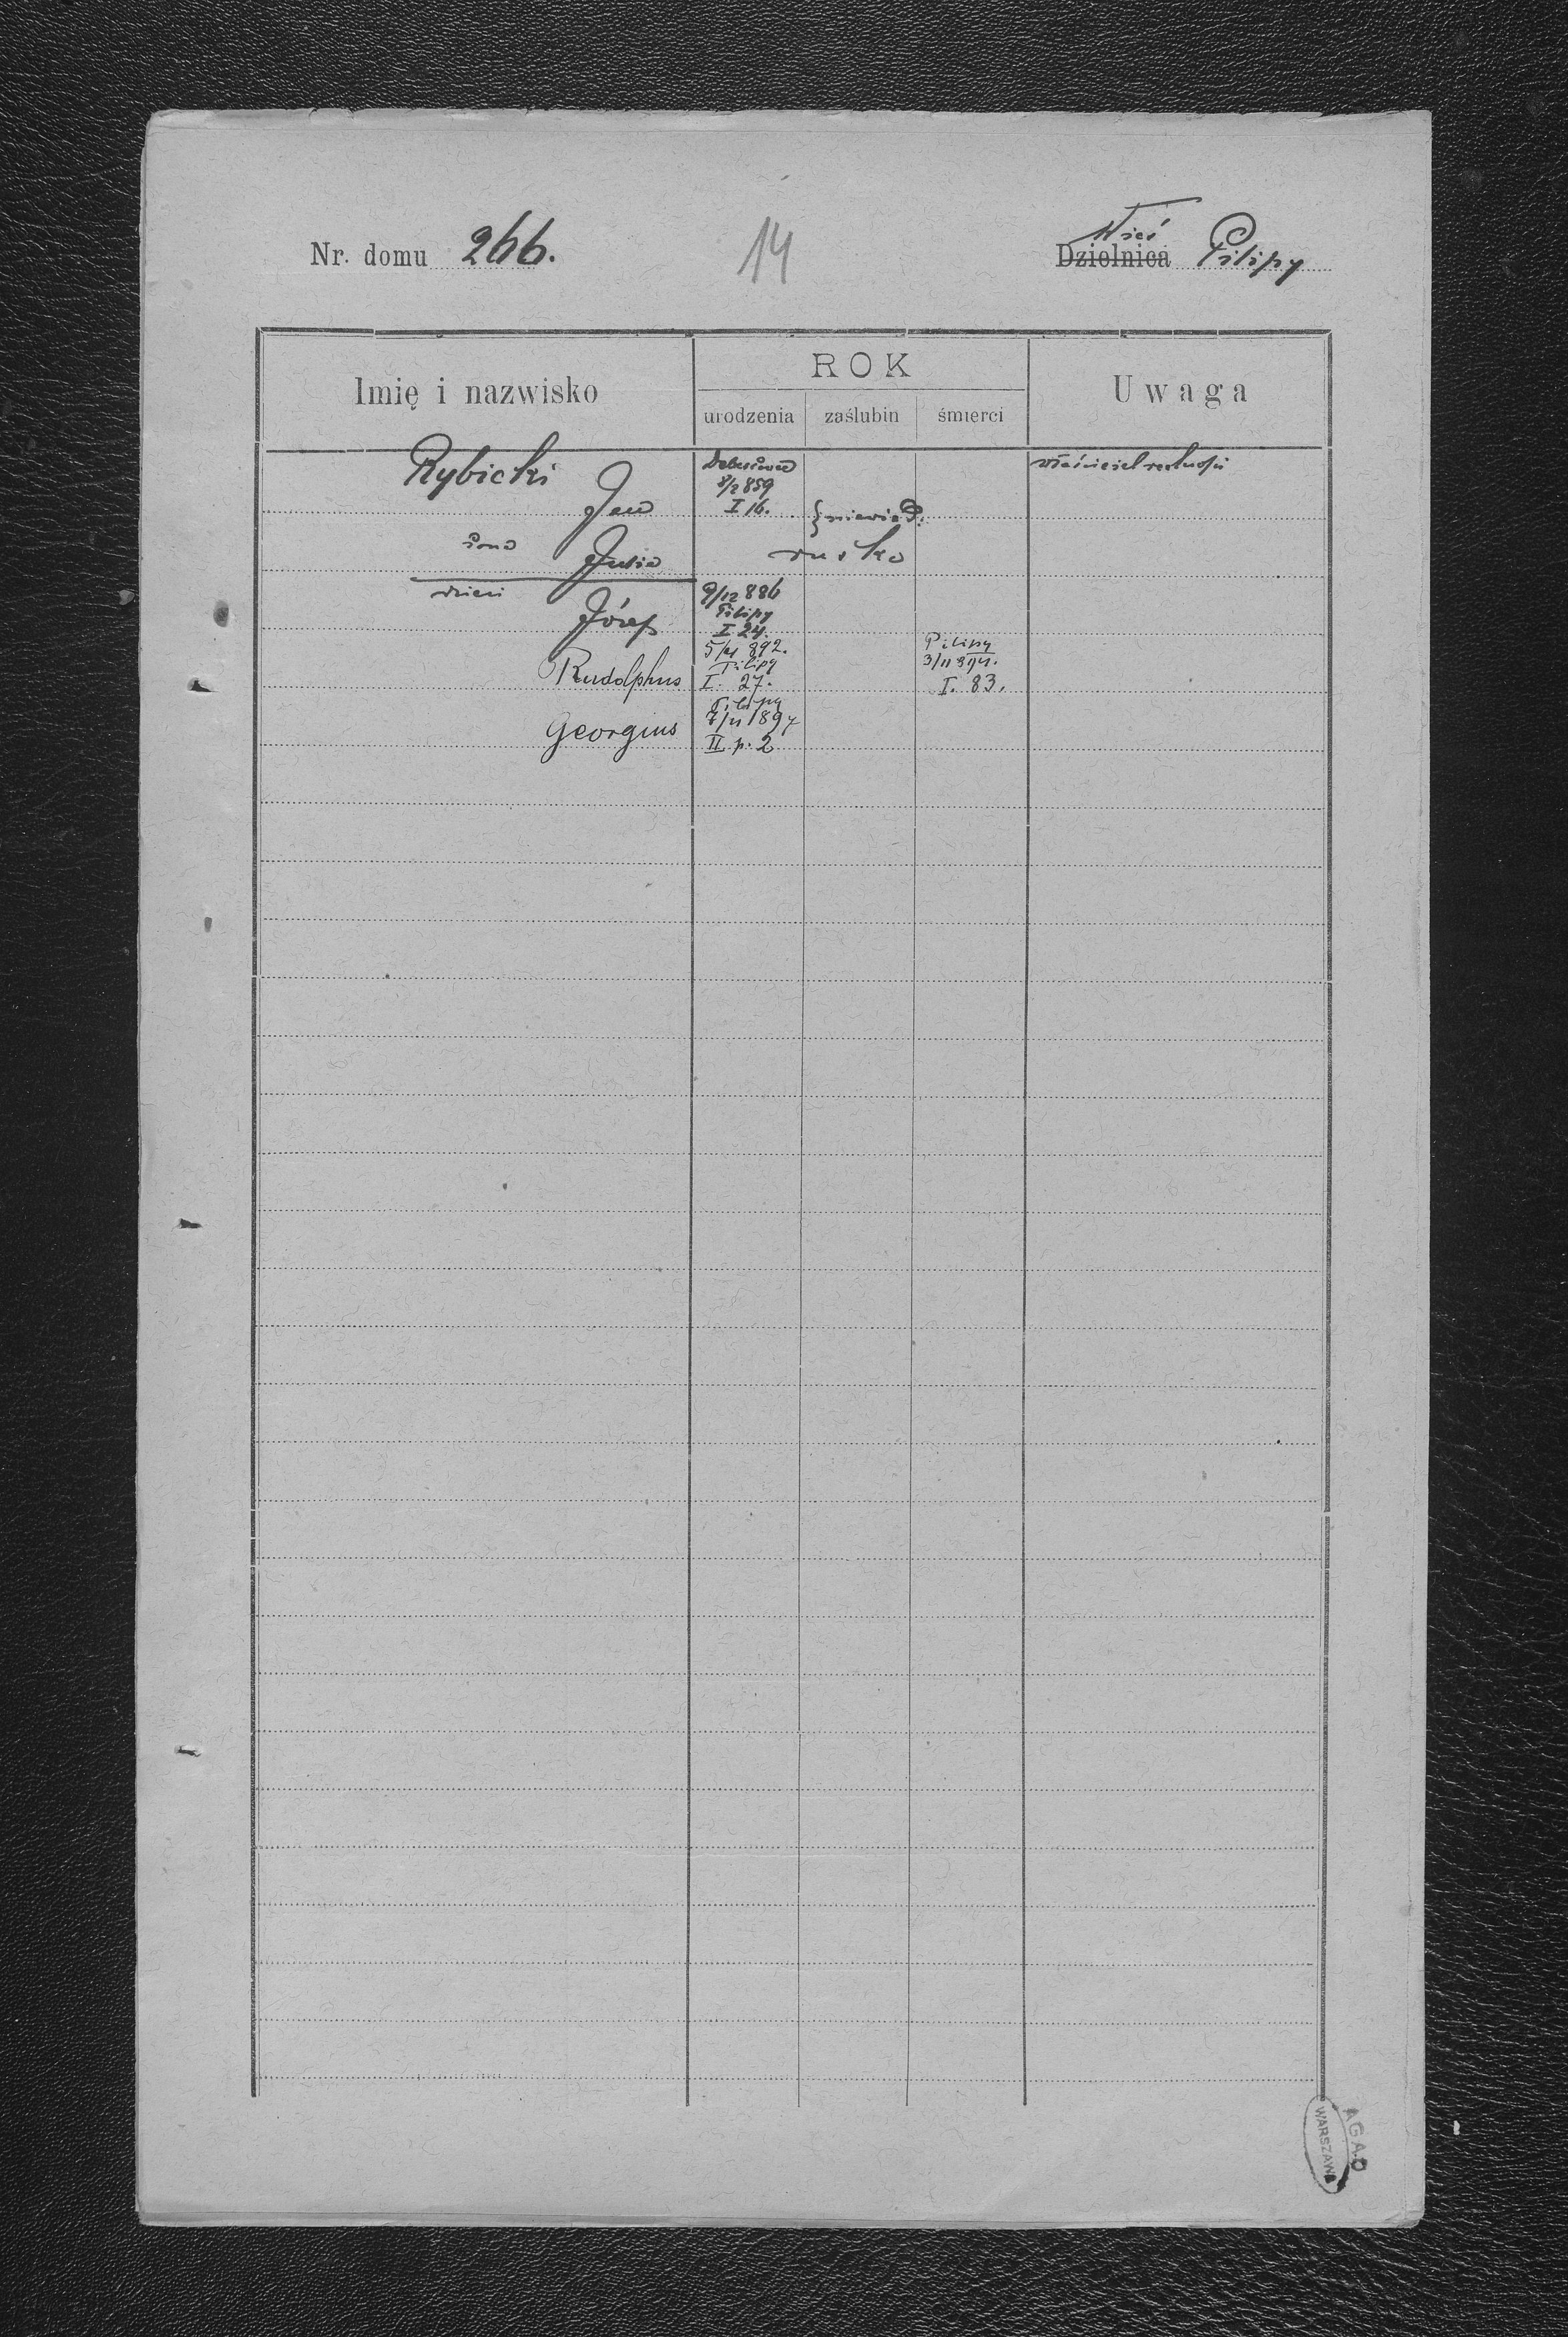 Nr. domu 266.
14
Wieś
Dzielnica Pilipy
Imię i nazwisko
ROK
urodzenia zaślubin śmierci
Uwaga
Rybicki
Jan
8/2 859
I 16.
właściciel realności
żona Julia
ruska
dzieci Józef
9/12 886
Pilipy
I 24.
Rudolphus
892.
Pilipy
I. 27.
Pilipy
3/11
I. 83.
Georgius
Pilipy
7/11 1897
II p. 2
AGAD
WARSZAWA